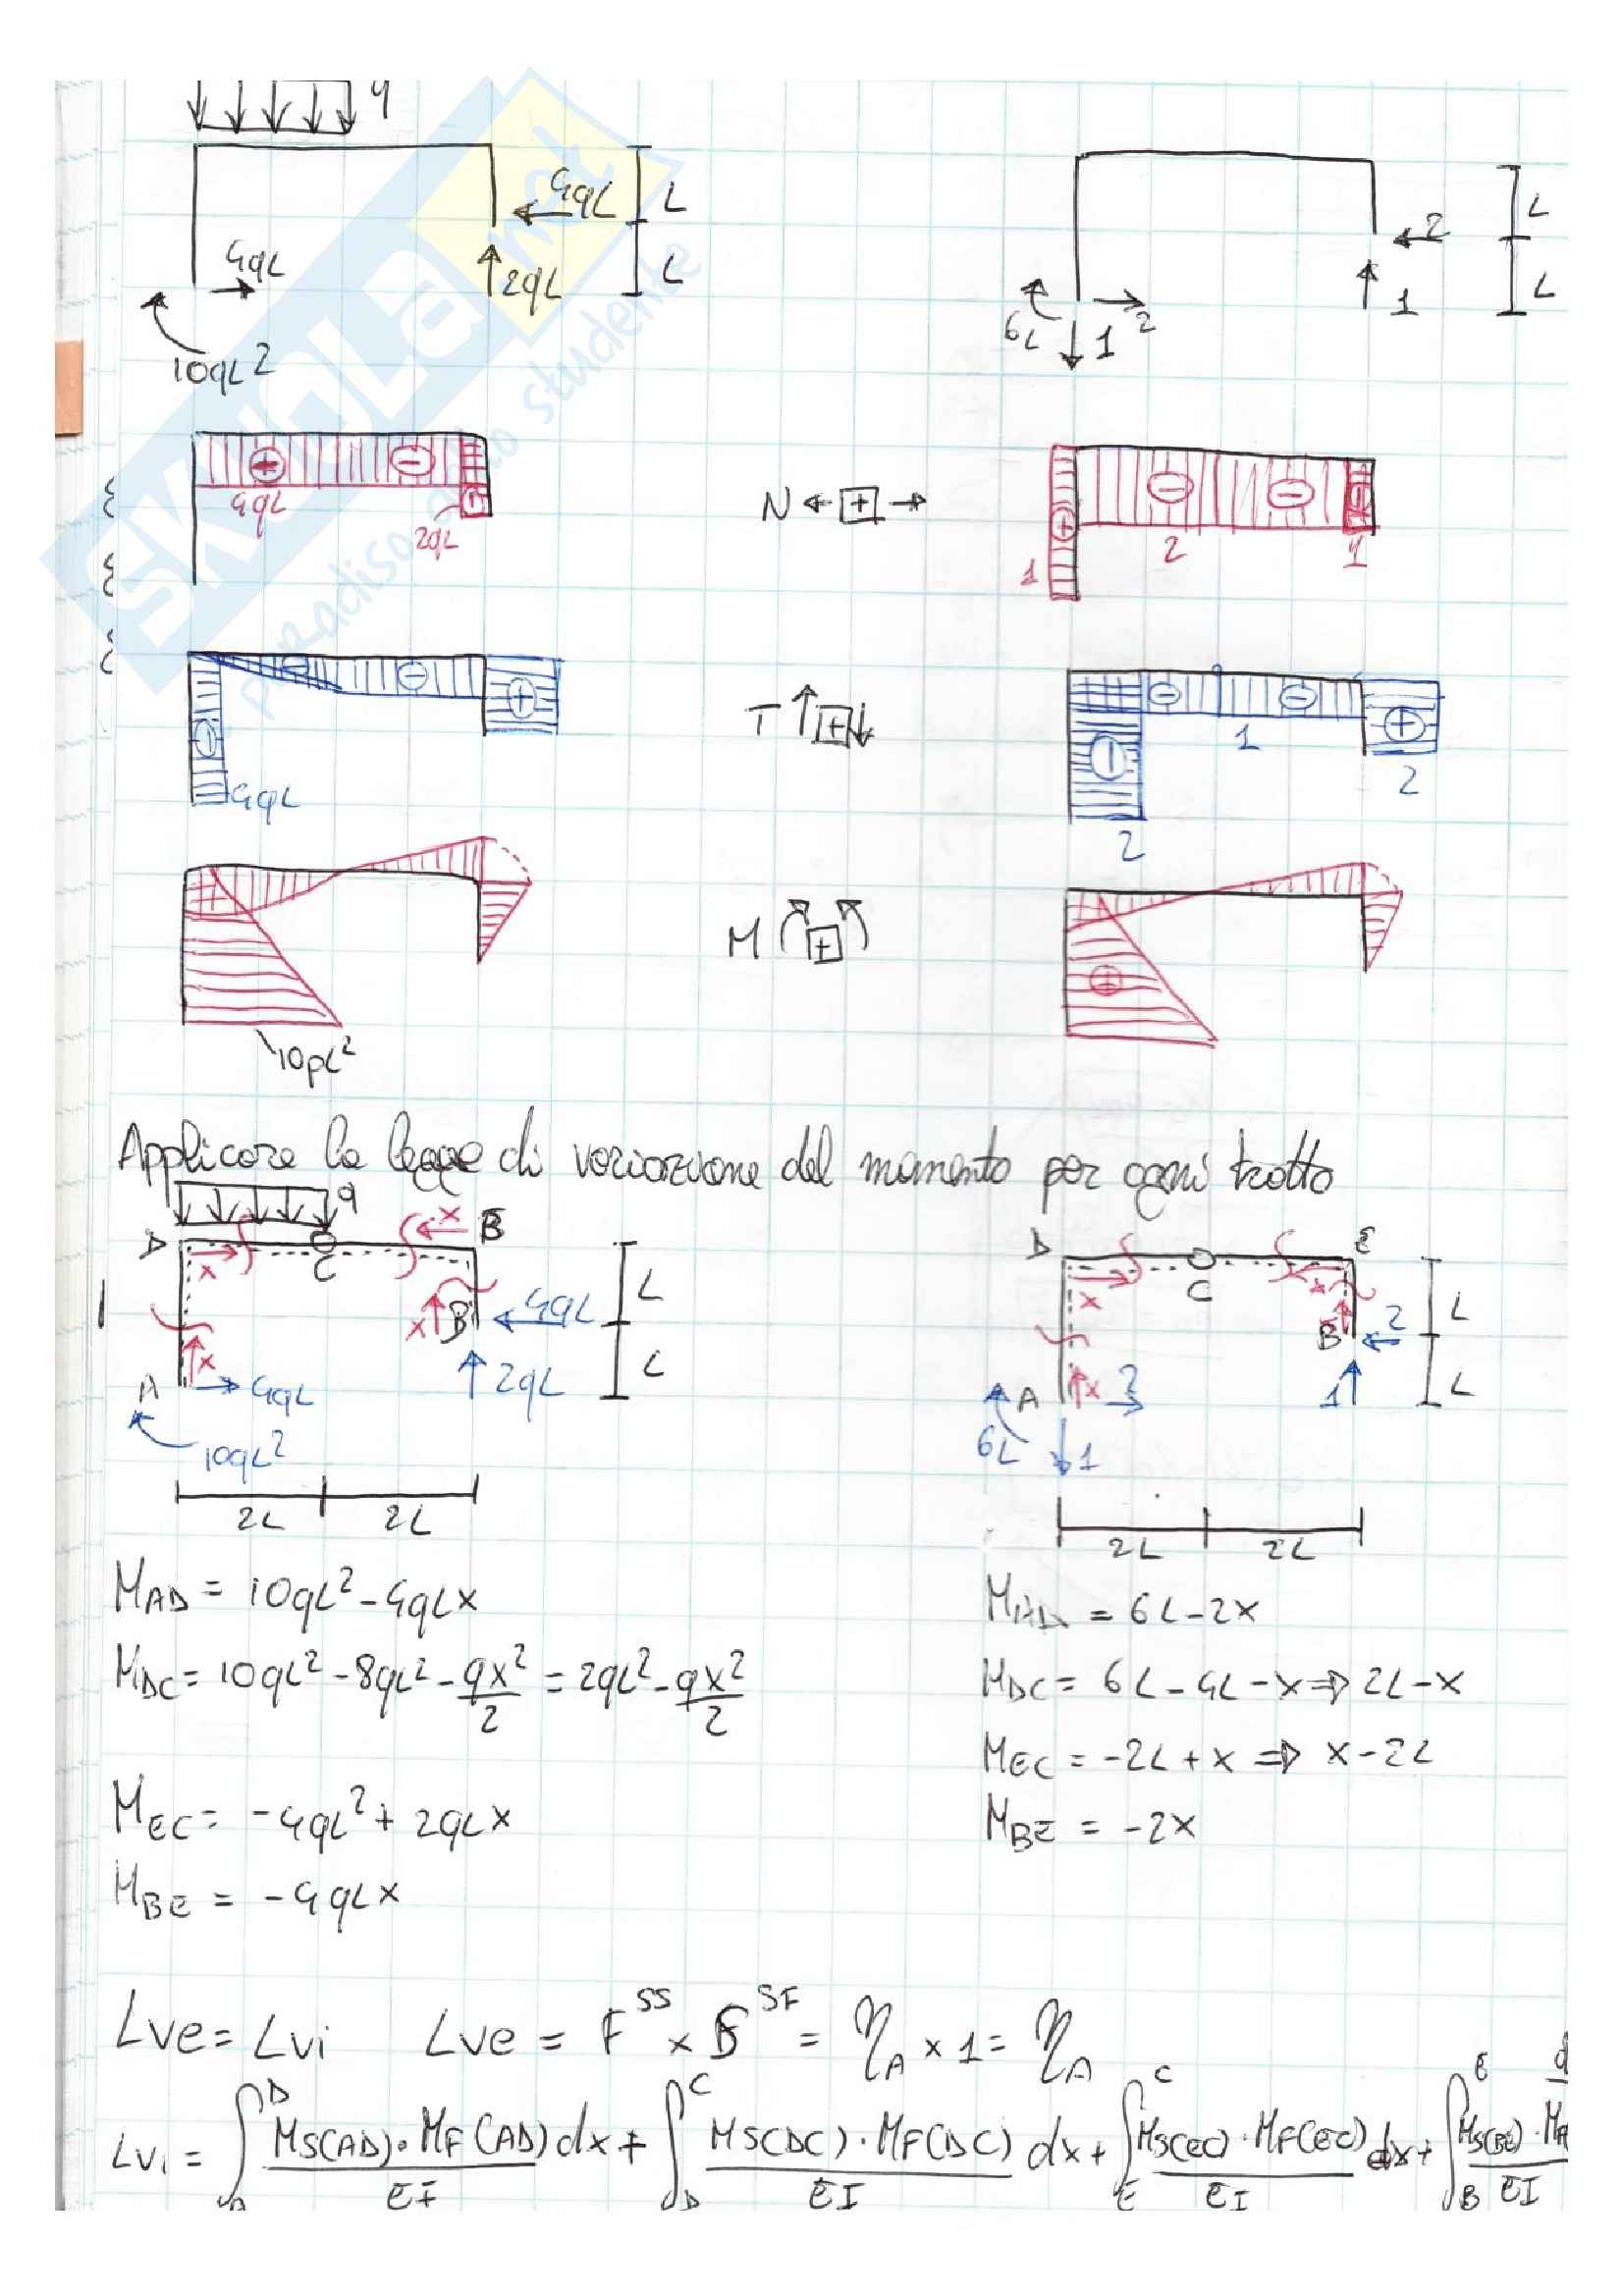 q
4qL
L
2
L
4qL
2qL
L
1
L
10qL²
6L
1
2
4qL
2qL
N
1
2
1
4qL
T
2
1
2
M
10pL²
Applicare la legge di variazione del momento per ogni tratto
q
D
x
C
x
B
x
B
4qL
L
L
x
A
4qL
2qL
10qL²
2L
2L
D
x
C
x
E
B
2
L
L
A
x
2
1
6L
1
2L
2L
M_AD = 10qL² - 4qLx
M_DC = 10qL² - 8qL² - qx²/2 = 2qL² - qx²/2
M_EC = -4qL² + 2qLx
M_BE = -4qLx
M_AD = 6L - 2x
M_DC = 6L - 4L - x ⇒ 2L - x
M_EC = -2L + x ⇒ x - 2L
M_BE = -2x
Lve = Lvi Lve = F^SS x δ^SF = η_A x 1 = η_A
Lvi = ∫_A^D Ms(AD)·MF(AD)/EI dx + ∫_D^C Ms(DC)·MF(DC)/EI dx + ∫_E^C Ms(EC)·MF(EC)/EI dx + ∫_B^E Ms(BE)·MF/EI
SKUOLA.net
paradiso dello studente